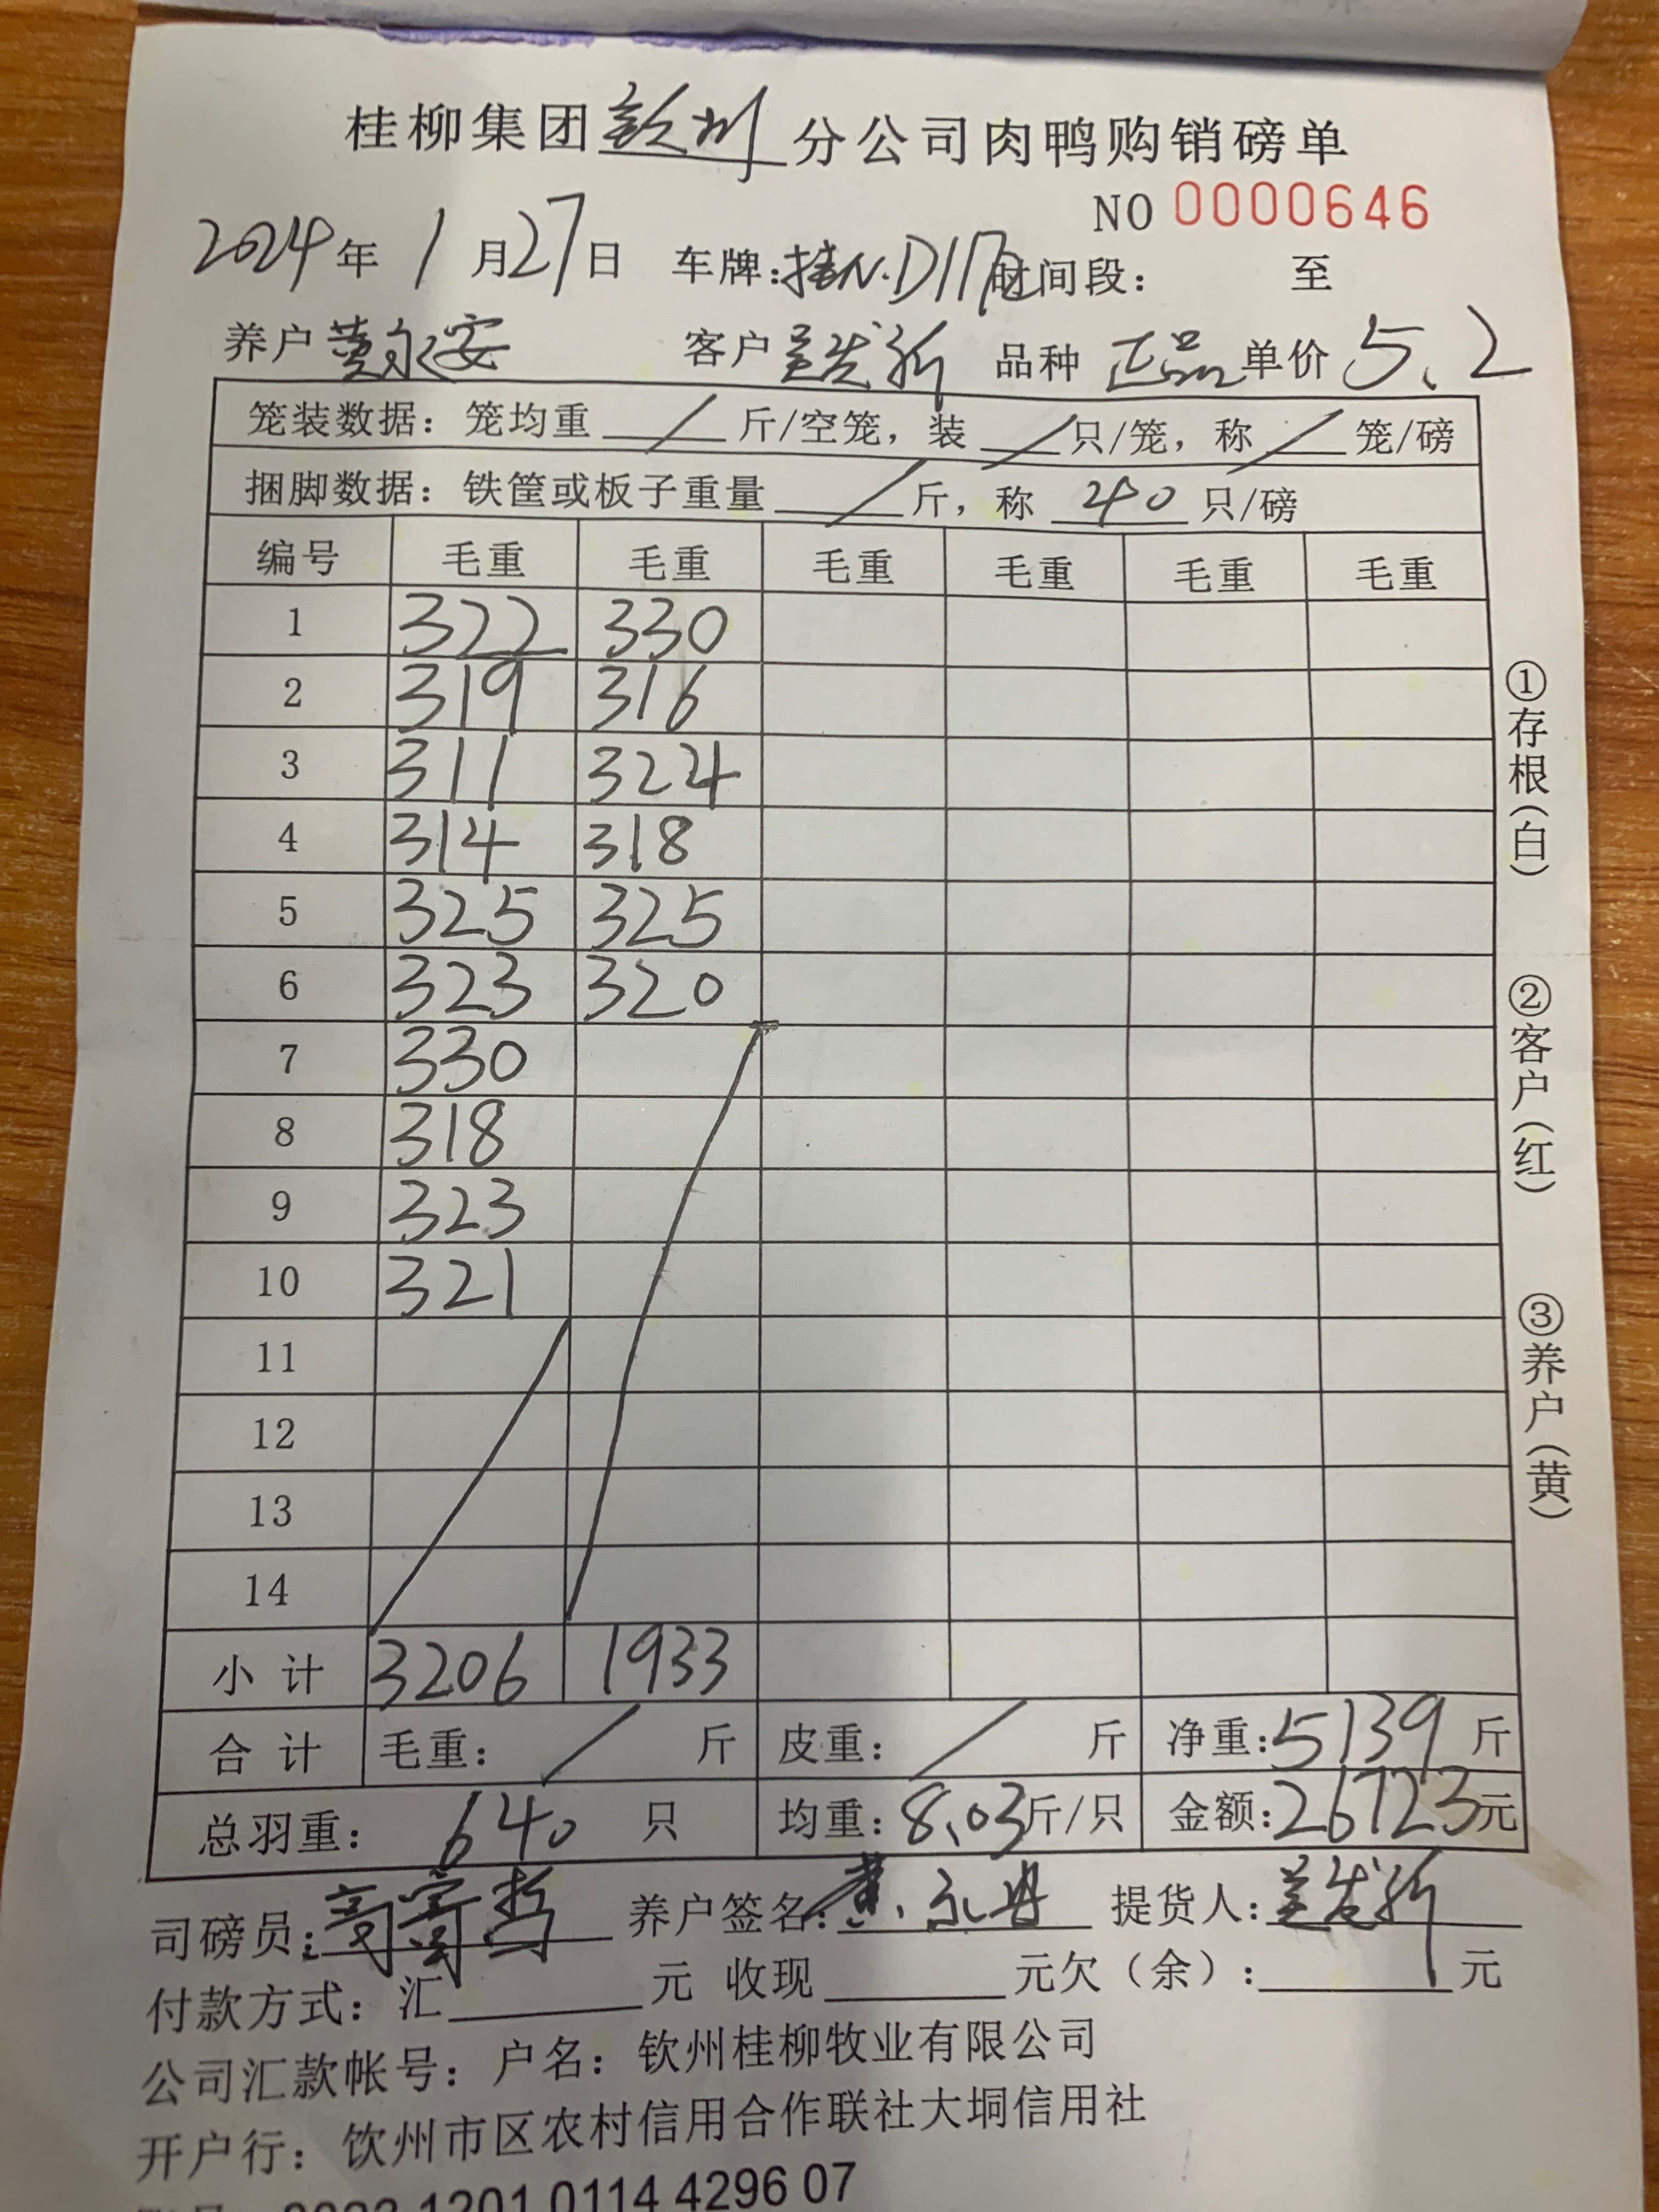 桂柳集团钦州分公司肉鸭购销磅单
NO 0000646
2024年1月27日 车牌:桂N·D117 时间段: 至
养户 黄永安 客户 发新 品种 正品 单价 5.2
笼装数据:笼均重 / 斤/空笼,装 / 只/笼,称 / 笼/磅
捆脚数据:铁筐或板子重量 / 斤,称 240 只/磅
编号 毛重 毛重 毛重 毛重 毛重 毛重
1 322 330
2 319 316
3 311 324
4 314 318
5 325 325
6 323 320
7 330
8 318
9 323
10 321
11
12
13
14
小计 3206 1933
合计 毛重: / 斤 皮重: / 斤 净重:5139 斤
总羽重: 640 只 均重:8.03斤/只 金额:26723元
司磅员: 养户签名:黄永 提货人:发新
付款方式:汇 元 收现 元欠(余): 元
公司汇款帐号:户名:钦州桂柳牧业有限公司
开户行:钦州市区农村信用合作联社大垌信用社
1201 0114 4296 07
①存根(白)
②客户(红)
③养户(黄)